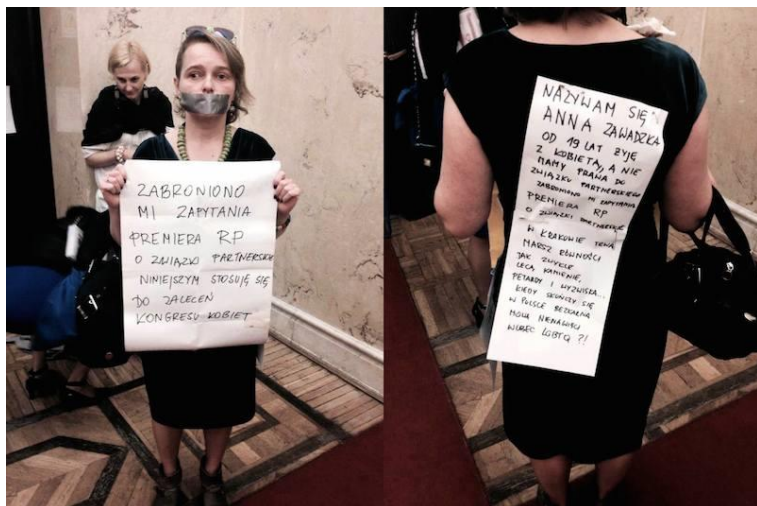 ZABRONIONO
MI ZAPYTANIA
PREMIERA RP
O ZWIĄZKI PARTNERSKIE
NINIEJSZYM STOSUJĘ SIĘ
DO ZALECEŃ
KONGRESU KOBIET
NAZYWAM SIĘ
ANNA ZAWADZKA
OD 19 LAT ŻYJĘ
Z KOBIETĄ, A NIE
MAMY PRAWA DO
ZWIĄZKU PARTNERSKIEGO
ZABRONIONO MI ZAPYTANIA
PREMIERA RP
O ZWIĄZKI PARTNERSKIE
W KRAKOWIE TRWA
MARSZ RÓWNOŚCI
JAK ZWYKLE
LECĄ KAMIENIE,
PETARDY I WYZWISKA...
KIEDY SKOŃCZY SIĘ
W POLSCE BEZKARNA
MOWA NIENAWIŚCI
WOBEC LGBTQ ?!